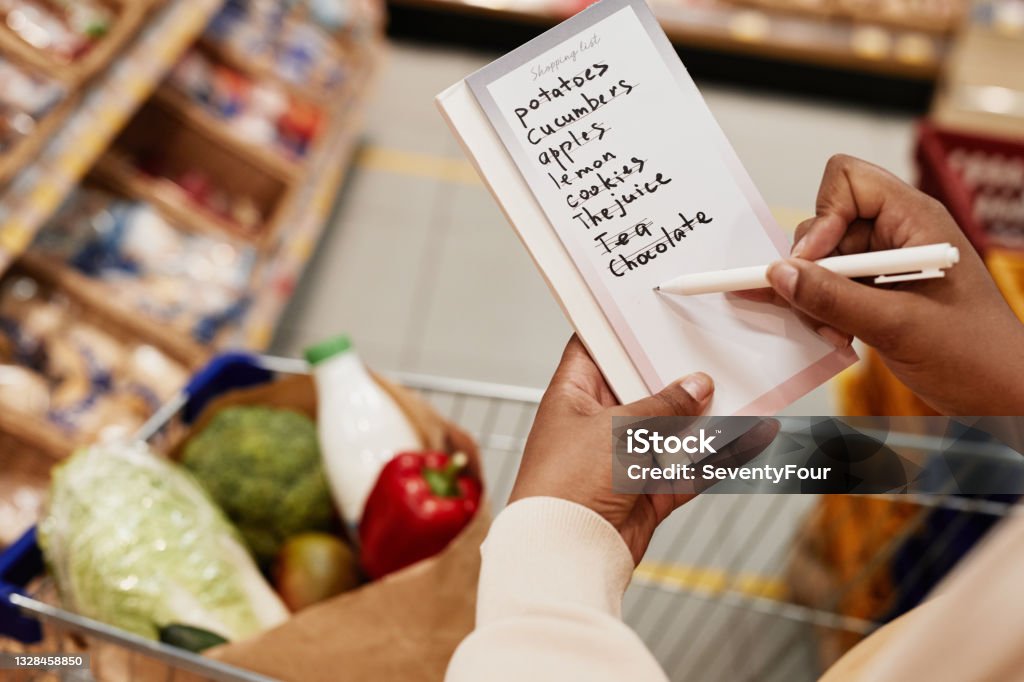 Shopping list
potatoes
Cucumbers
apples
lemon
cookies
The juice
Tea
Chocolate
iStock™
Credit: SeventyFour
1328458850